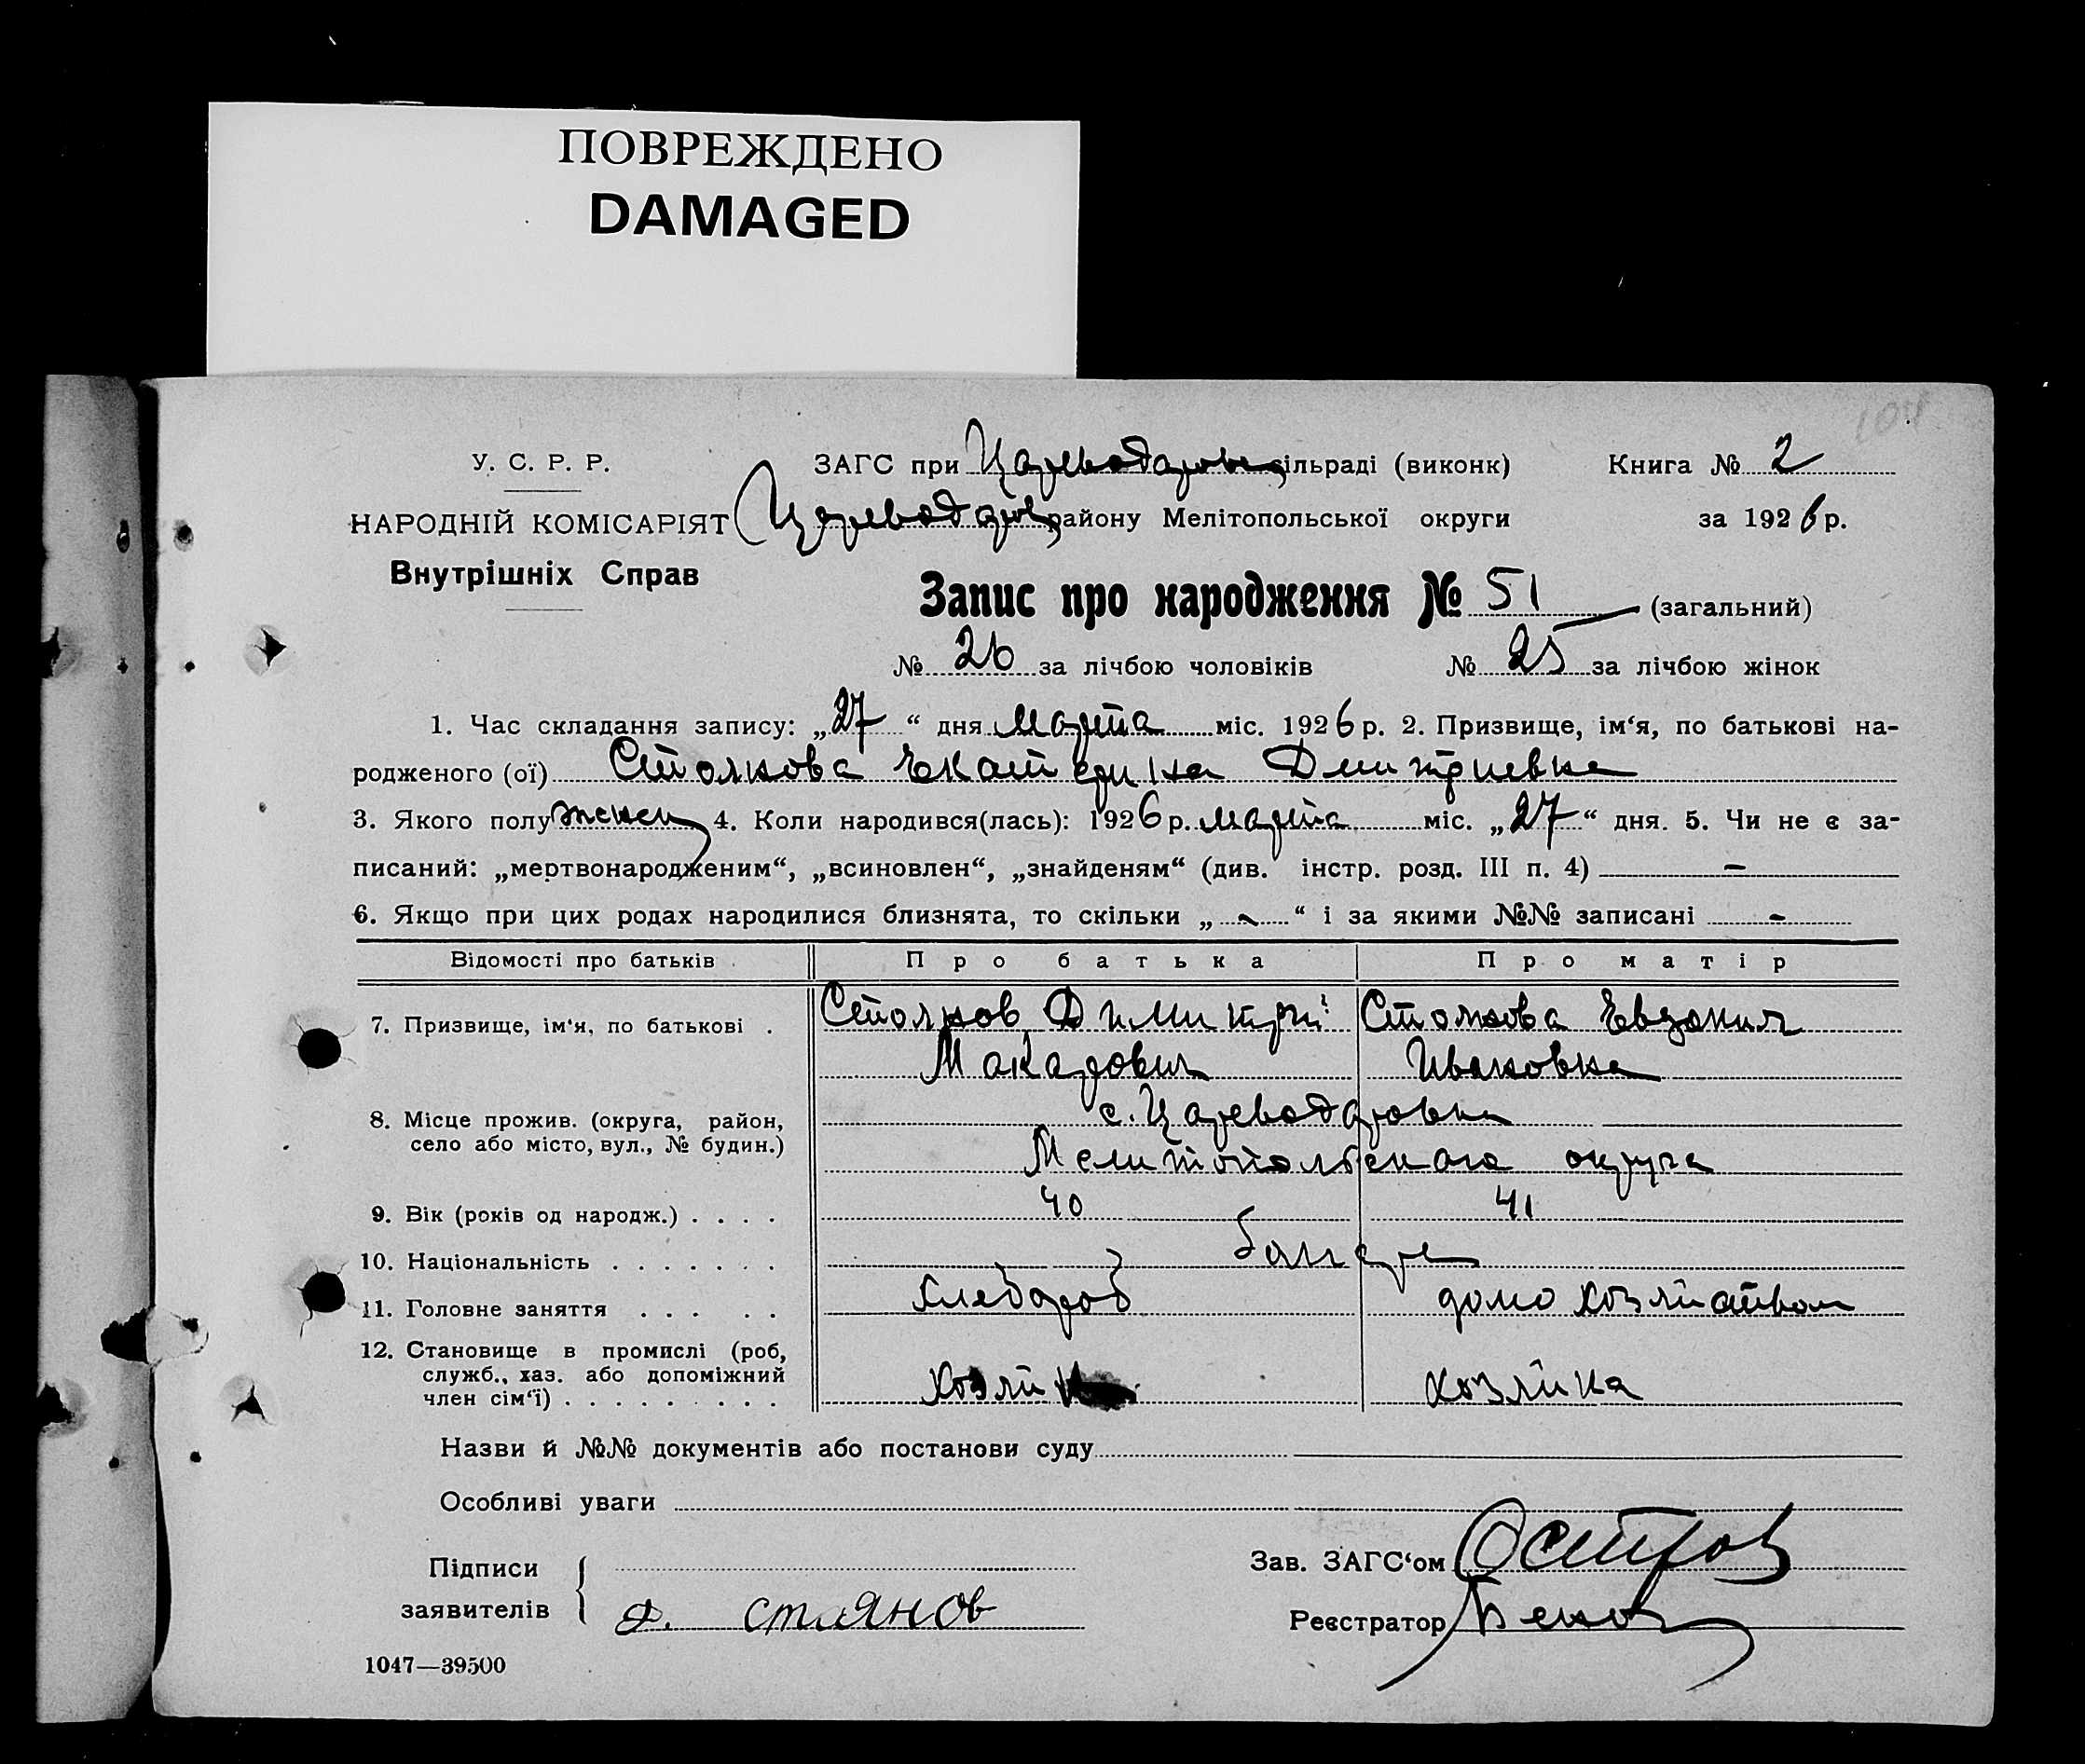 ПОВРЕЖДЕНО
DAMAGED
104
У. С. Р. Р. ЗАГС при Цареводаровск сільраді (виконк) Книга № 2
НАРОДНІЙ КОМІСАРІЯТ Цареводар району Мелітопольської округи за 1926 р.
Внутрішніх Справ
Запис про народження № 51 (загальний)
№ 26 за лічбою чоловіків № 25 за лічбою жінок
1. Час складання запису: „27“ дня марта міс. 1926 р. 2. Призвище, ім‘я, по батькові на-
родженого (ої) Стоянова Екатерина Дмитриевна
3. Якого полу женск 4. Коли народився(лась): 1926 р. марта міс. „27“ дня. 5. Чи не є за-
писаний: „мертвонародженим“, „всиновлен“, „знайденям“ (див. інстр. розд. III п. 4) -
6. Якщо при цих родах народилися близнята, то скільки „-“ і за якими №№ записані -
Відомості про батьків Про батька Про матір
7. Призвище, ім‘я, по батькові . Стоянов Димитрий Стоянова
Макарович Ивановна
8. Місце прожив. (округа, район, с. Цареводаровка
село або місто, вул., № будин.) Мелитопольского округа
9. Вік (років од народж.) . . . . 40 41
10. Національність . . . . . . . болгаре
11. Головне заняття . . . . . хлебороб домохозяйством
12. Становище в промислі (роб,
служб., хаз. або допоміжний
член сім‘ї) . . . . . . . . . хозяин хозяйка
Назви й №№ документів або постанови суду
Особливі уваги
Підписи Зав. ЗАГС‘ом
заявителів Д. стоянов Реєстратор
1047—39500